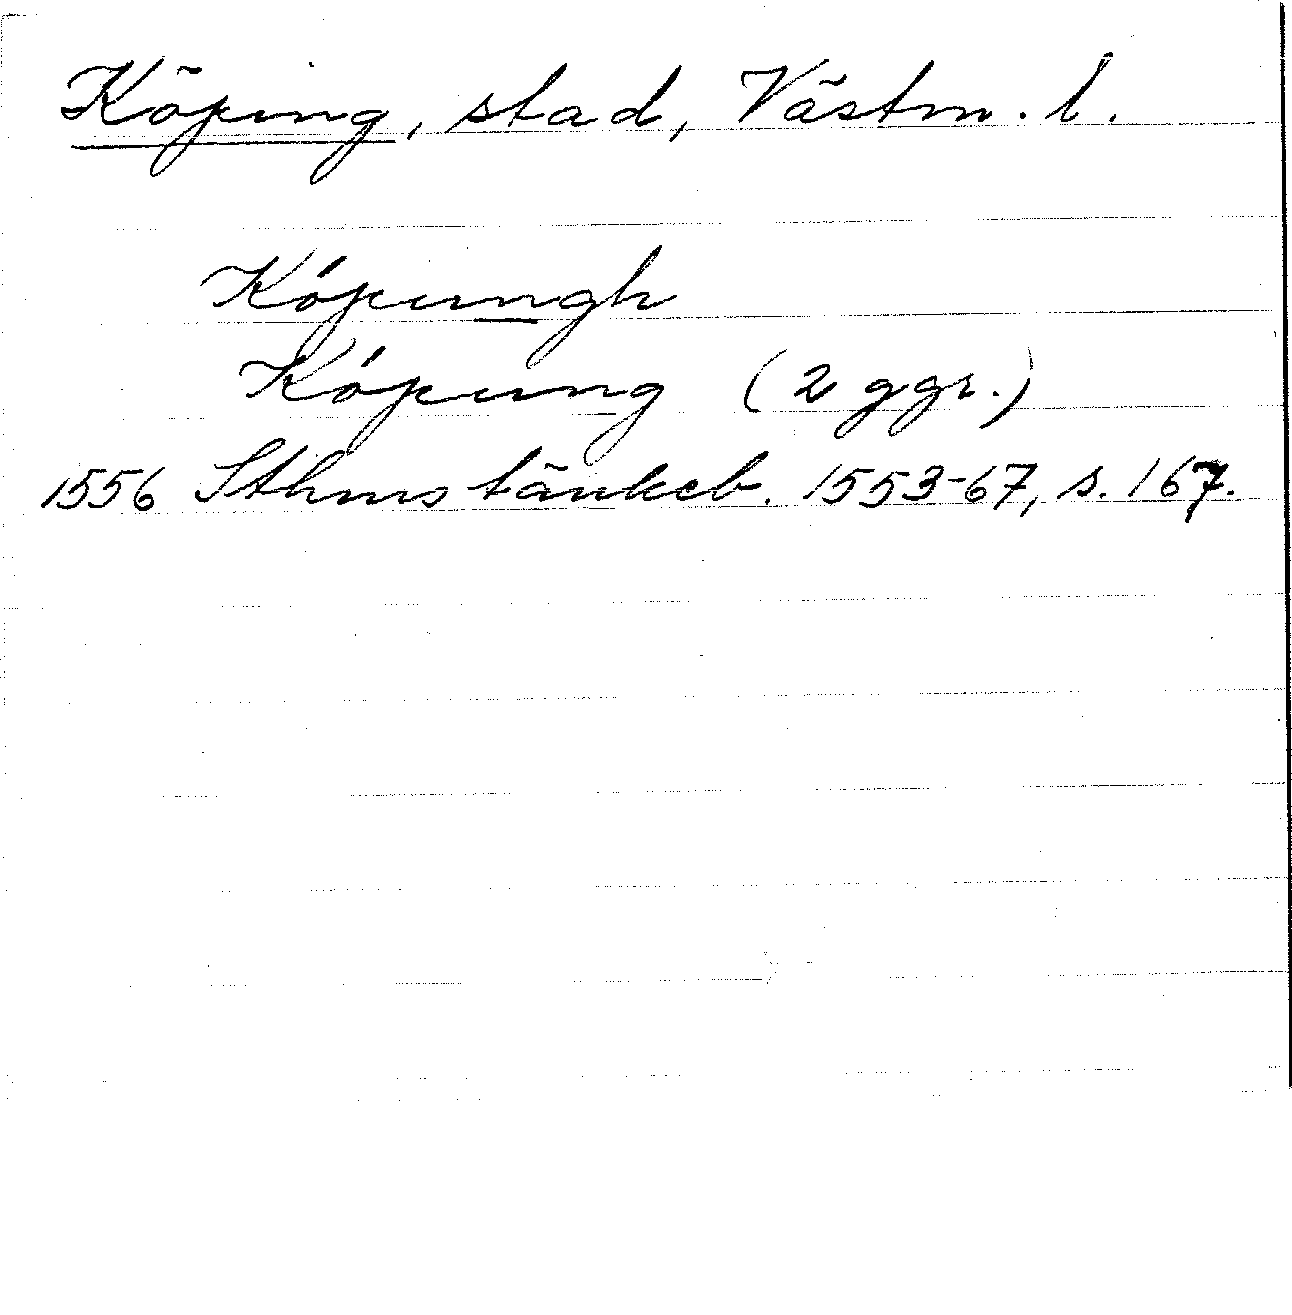 Köping, stad, Västm. l.
Kópungh
Kópung (2 ggr.)
1556 Sthms tänkeb. 1553-67, s. 167.